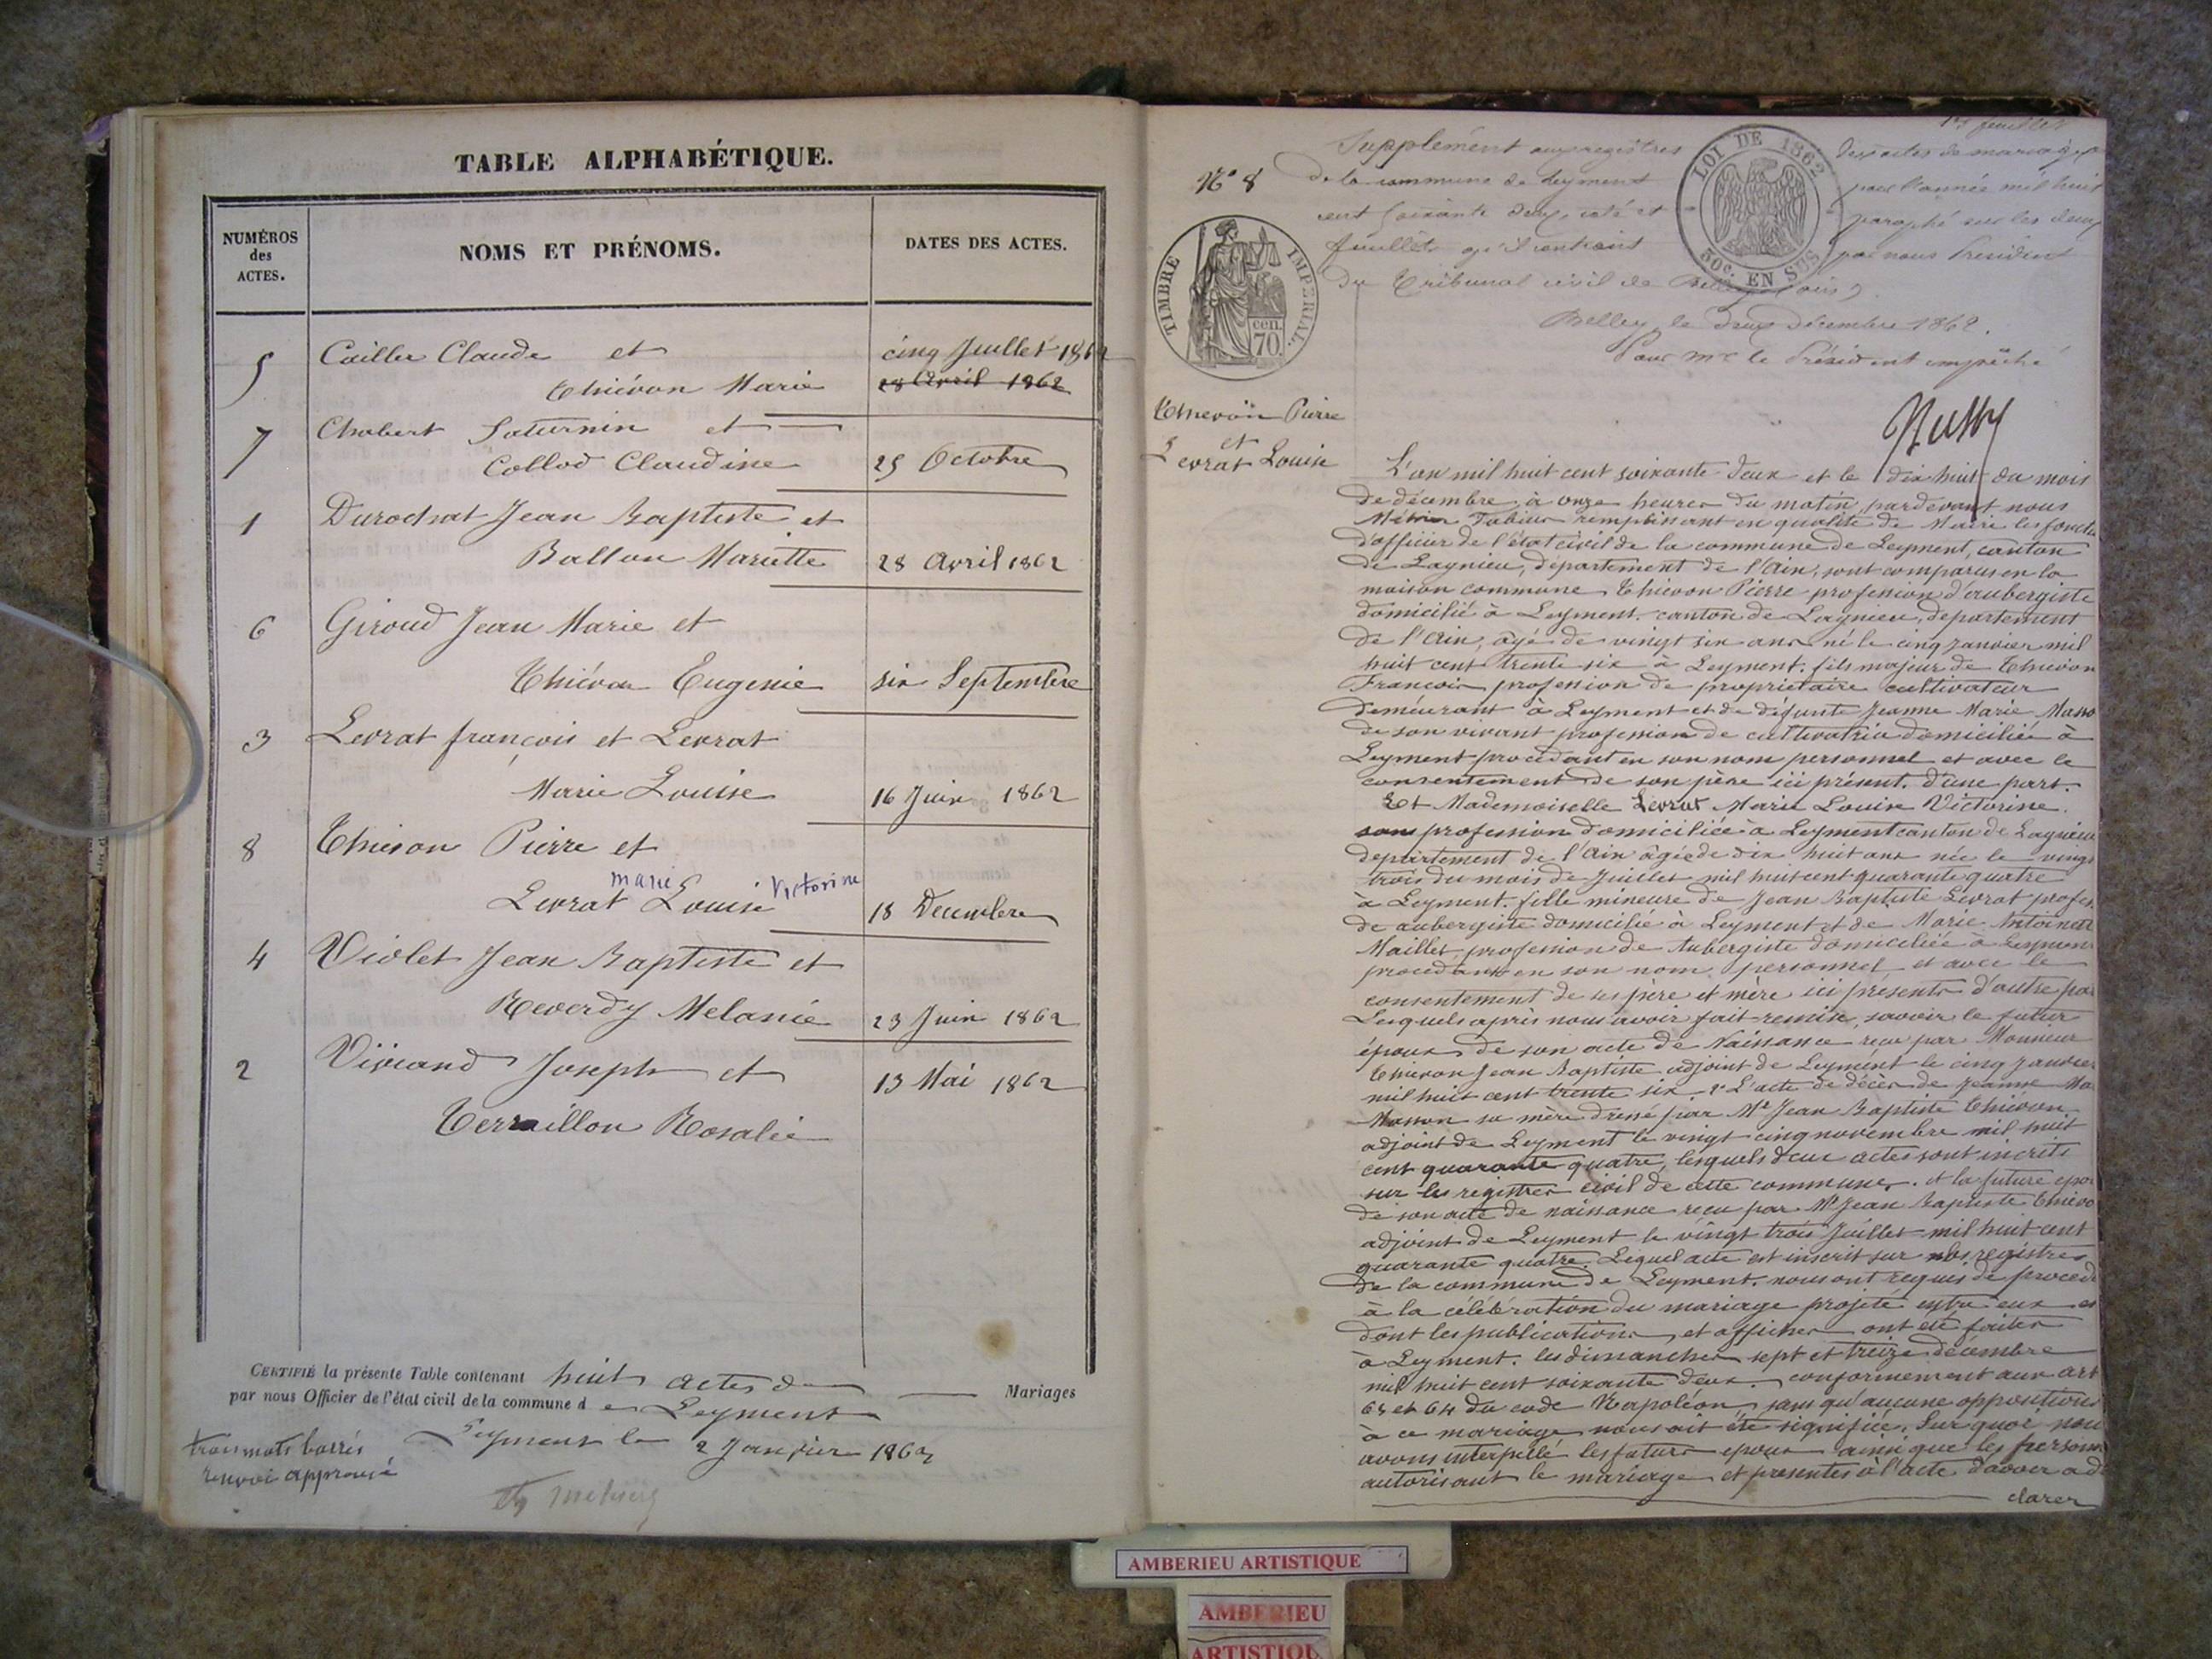 TABLE ALPHABÉTIQUE.
NUMÉROS
des
ACTES.
NOMS ET PRÉNOMS.
DATES DES ACTES.
5 Cailler Claude et cinq Juillet 1862
Thiévon Marie 28 Avril 1862
7 Chabert Saturnin et
Collod Claudine 25 Octobre
1 Durochat Jean Baptiste et
Ballon Mariette 28 Avril 1862
6 Giroud Jean Marie et
Thiévon Eugenie six Septembre
3 Levrat françois et Levrat
Marie Louise 16 Juin 1862
8 Thievon Pierre et
marie Victorine
Levrat Louise 18 Decembre
4 Violet Jean Baptiste et
Reverdy Melanie 23 Juin 1862
2 Vivrand Joseph et 13 Mai 1862
Terraillon Rosalie
CERTIFIÉ la présente Table contenant huit actes de Mariages
par nous Officier de l'état civil de la commune de Leyment
Leyment le 2 Janvier 1863
trois mots barrés
renvoi approuvé
1er feuillet
N° 8
Supplément aux registres des actes de mariage
de la commune de Leyment pour l'année mil huit
cent soixante deux, coté et paraphé sur les deux
feuillets qu'il contient par nous Président
du Tribunal civil de
Belley le deux Décembre 1862.
Pour Mr le Président empêché
LOI DE 1862
50c. EN SUS
TIMBRE IMPÉRIAL
70 cen.
Thievon Pierre
et
Levrat Louise
L'an mil huit cent soixante deux et le dix huit du mois
de décembre à onze heures du matin, pardevant nous
Fabien remplissant en qualité de Maire les foncti
d'officier de l'état civil de la commune de Leyment, canton
de Lagnieu, departement de l'Ain, sont comparus en la
maison commune Thievon Pierre profession d'aubergiste
domicilié à Leyment canton de Lagnieu, departement
de l'Ain, âgé de vingt six ans né le cinq janvier mil
huit cent trente six à Leyment. fils majeur de Thievon
François profession de propriétaire cultivateur
demeurant à Leyment et de défunte Jeanne Marie Masso
de son vivant profession de cultivatrice domiciliée à
Leyment procédant en son nom personnel et avec le
consentement de son père ici présent. d'une part.
Et Mademoiselle Levrat Marie Louise Victorine.
sans profession domiciliée à Leyment canton de Lagnieu
departement de l'Ain âgée de dix huit ans née le vingt
trois du mois de Juillet mil huit cent quarante quatre
à Leyment. fille mineure de Jean Baptiste Levrat profes.
de aubergiste domicilié à Leyment et de Marie Antoinett
Maillet profession de Aubergiste domiciliée à Leymen
procédant en son nom personnel et avec le
consentement de ses père et mère ici présents d'autre par
Lesquels après nous avoir fait remise, savoir le futur
époux de son acte de Naissance reçu par Monsieur
Thievon Jean Baptiste adjoint de Leyment le cinq janvier
mil huit cent trente six 2° L'acte de décès de Jeanne Ma
Masson sa mère dressé par Mr Jean Baptiste Thiévon
adjoint de Leyment le vingt cinq novembre mil huit
cent quarante quatre, lesquels deux actes sont inscrits
sur les registres civil de cette commune. et la future épou
de son acte de naissance reçu par Mr Jean Baptiste Thievo
adjoint de Leyment le vingt trois Juillet mil huit cent
quarante quatre. Lequel acte est inscrit sur nos registres
de la commune de Leyment. nous ont requis de procede
à la célébration du mariage projeté entre eux et
dont les publications et affiches ont été faites
à Leyment. les dimanches sept et treize décembre
mil huit cent soixante deux. conformement aux art
63 et 64 du code Napoléon, sans qu'aucune oppositions
à ce mariage nous ait été signifiée. Sur quoi nou
avons interpellé les futurs epoux ainsi que les person
autorisant le mariage et presentes à l'acte d'avoir a dé
clarer
AMBERIEU ARTISTIQUE
AMBERIEU
ARTISTIQU